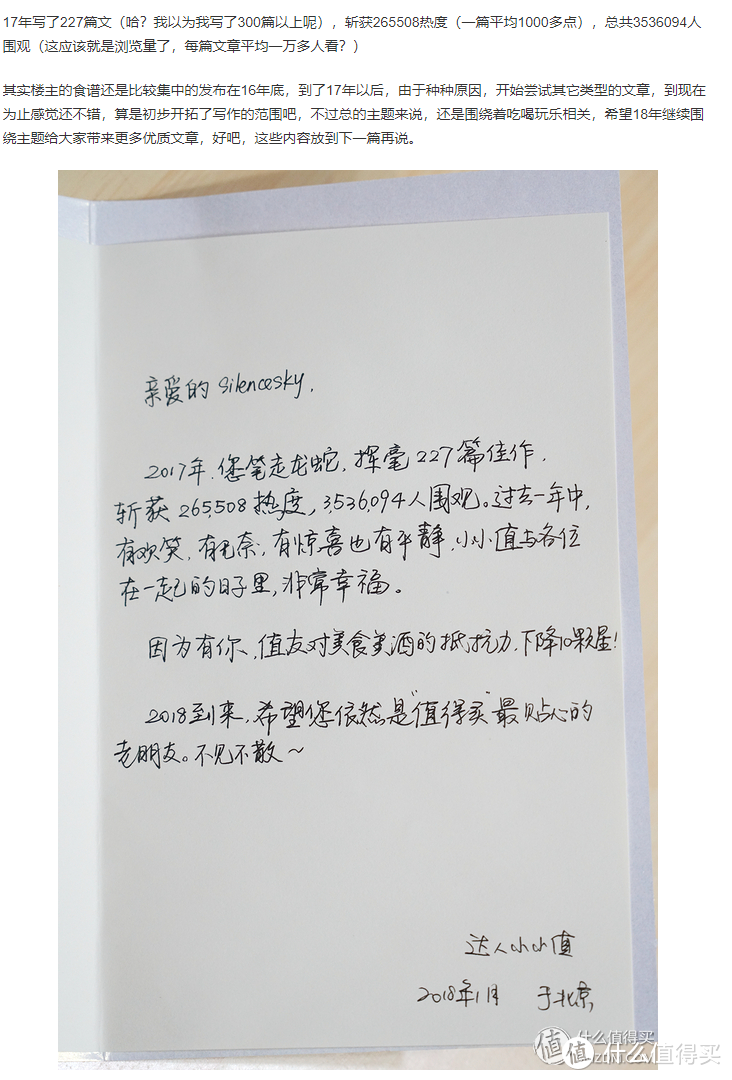 17年写了227篇文（哈？我以为我写了300篇以上呢），斩获265508热度（一篇平均1000多点），总共3536094人
围观（这应该就是浏览量了，每篇文章平均一万多人看？）
其实楼主的食谱还是比较集中的发布在16年底，到了17年以后，由于种种原因，开始尝试其它类型的文章，到现在
为止感觉还不错，算是初步开拓了写作的范围吧，不过总的主题来说，还是围绕着吃喝玩乐相关，希望18年继续围
绕主题给大家带来更多优质文章，好吧，这些内容放到下一篇再说。
亲爱的 Silencesky，
2017年，您笔走龙蛇，挥毫227篇佳作，
斩获 265,508 热度，3,536,094人围观。过去一年中，
有欢笑，有无奈，有惊喜也有平静，小小值与各位
在一起的日子里，非常幸福。
因为有你，值友对美食美酒的抵抗力，下降10颗星！
2018到来，希望您依然是“值得买”最贴心的
老朋友。不见不散～
达人小小值
2018年1月 于北京
什么值得买
值 值 什么值得买